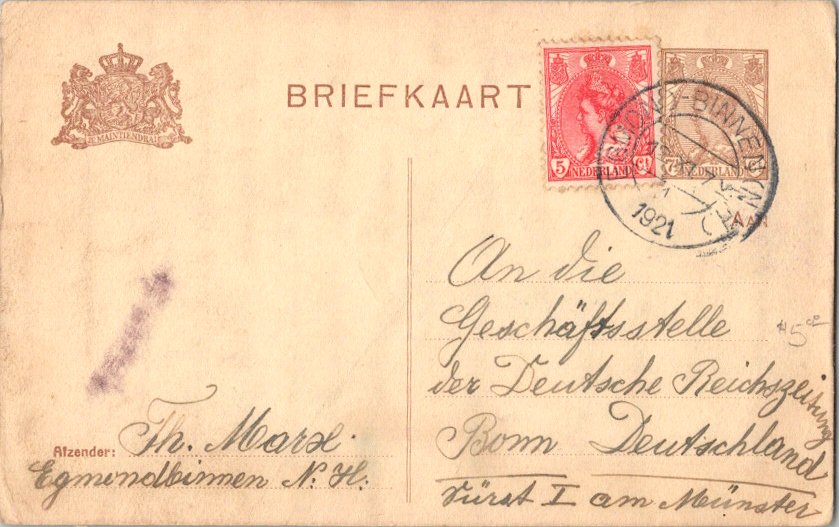 JE MAINTIENDRAI
BRIEFKAART
5 NEDERLAND Ct
7½ NEDERLAND
EGMOND-BINNEN
1921
AAN
An die
Geschäftsstelle
der Deutsche Reichszeitung
Bonn Deutschland
Fürst I am Münster
$5
Afzender: Th. Marx.
Egmondbinnen N. H.